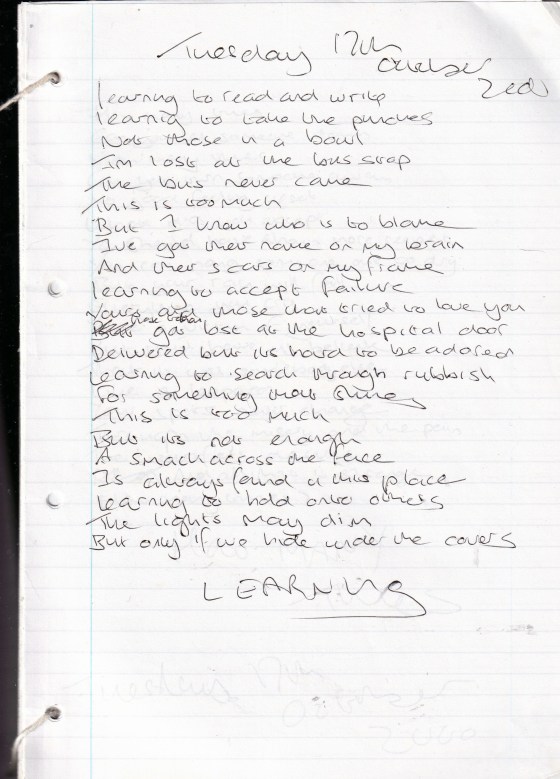 Tuesday 17th
October
learning to read and write
learnig to take the punches
Not those in a bowl
I'm lost at the bus stop
The bus never came
This is too much
But I know who is to blame
I've got their name on my brain
And their scars on my frame
learning to accept failure
Yours and those that tried to love you
got lost at the hospital door
Delivered but its hard to be adored
Learning to search through rubbish
For something that shines
This is too much
But its not enough
A smack across the face
Is always found in this place
Learning to hold onto others
The lights may dim
But only if we hide under the covers
LEARNING